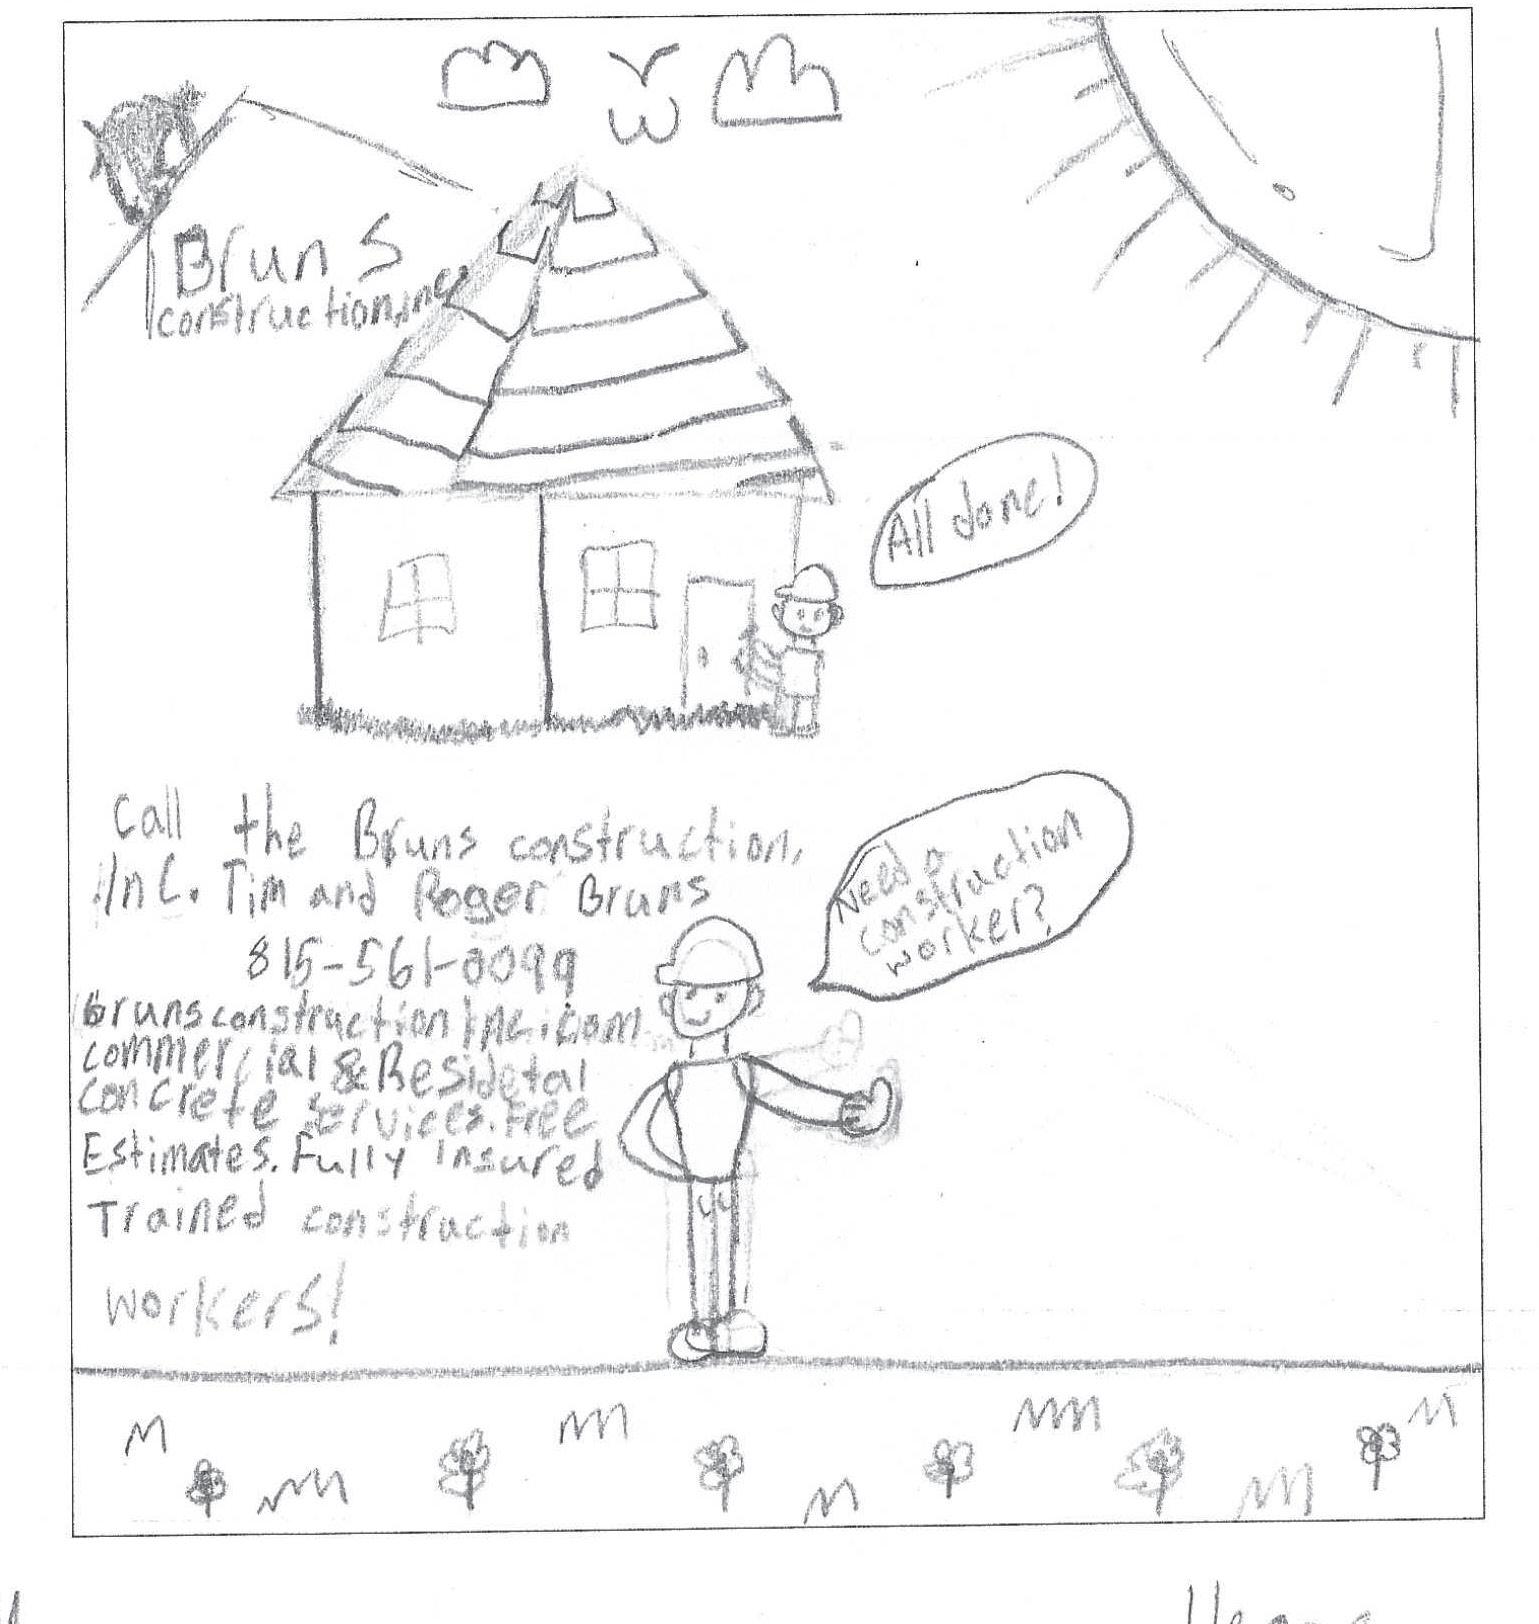 Bruns
construction, inc
All done!
Call the Bruns construction,
Inc. Tim and Roger Bruns
815-561-0099
Need a
construction
worker?
brunsconstructionInc.com
commercial & Residetal
concrete services. Free
Estimates. Fully Insured
Trained construction
workers!